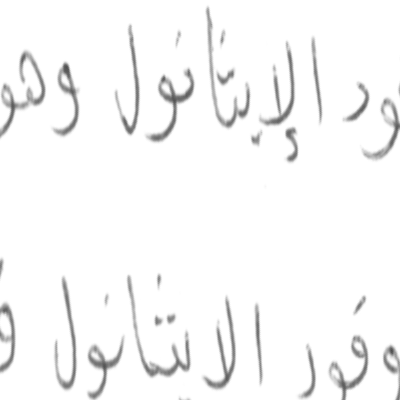 ود الإيثانول وهو
وقود الايثانول